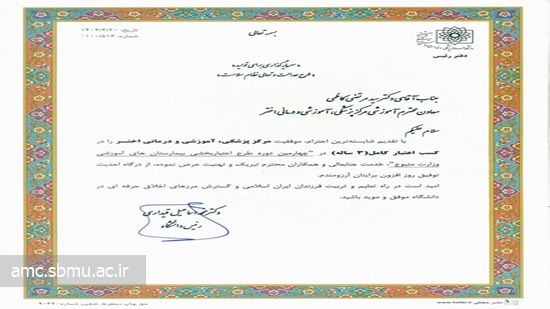 بسمه تعالی
تاریخ: ۱۴۰۴/۲/۲۰
شماره: ۰۱۰۰/۵۱۶
دفتر رئیس
«سرمایه‌گذاری برای تولید»
«طرح عدالت و تعالی نظام سلامت»
جناب آقای دکتر سید مرتضی کاظمی
معاون محترم آموزشی مرکز پزشکی، آموزشی و درمانی اختر
سلام علیکم
با تقدیم شایسته‌ترین احترام، موفقیت مرکز پزشکی، آموزشی و درمانی اختر را در
کسب اعتبار کامل(۳ ساله) در "چهارمین دوره طرح اعتباربخشی بیمارستان های آموزشی
وزارت متبوع"، خدمت جنابعالی و همکاران محترم تبریک و تهنیت عرض نموده، از درگاه احدیت
توفیق روز افزون برایتان آرزومندم.
امید است در راه تعلیم و تربیت فرزندان ایران اسلامی و گسترش مرزهای اخلاق حرفه ای در
دانشگاه موفق و موید باشید.
رئیس دانشگاه
amc.sbmu.ac.ir